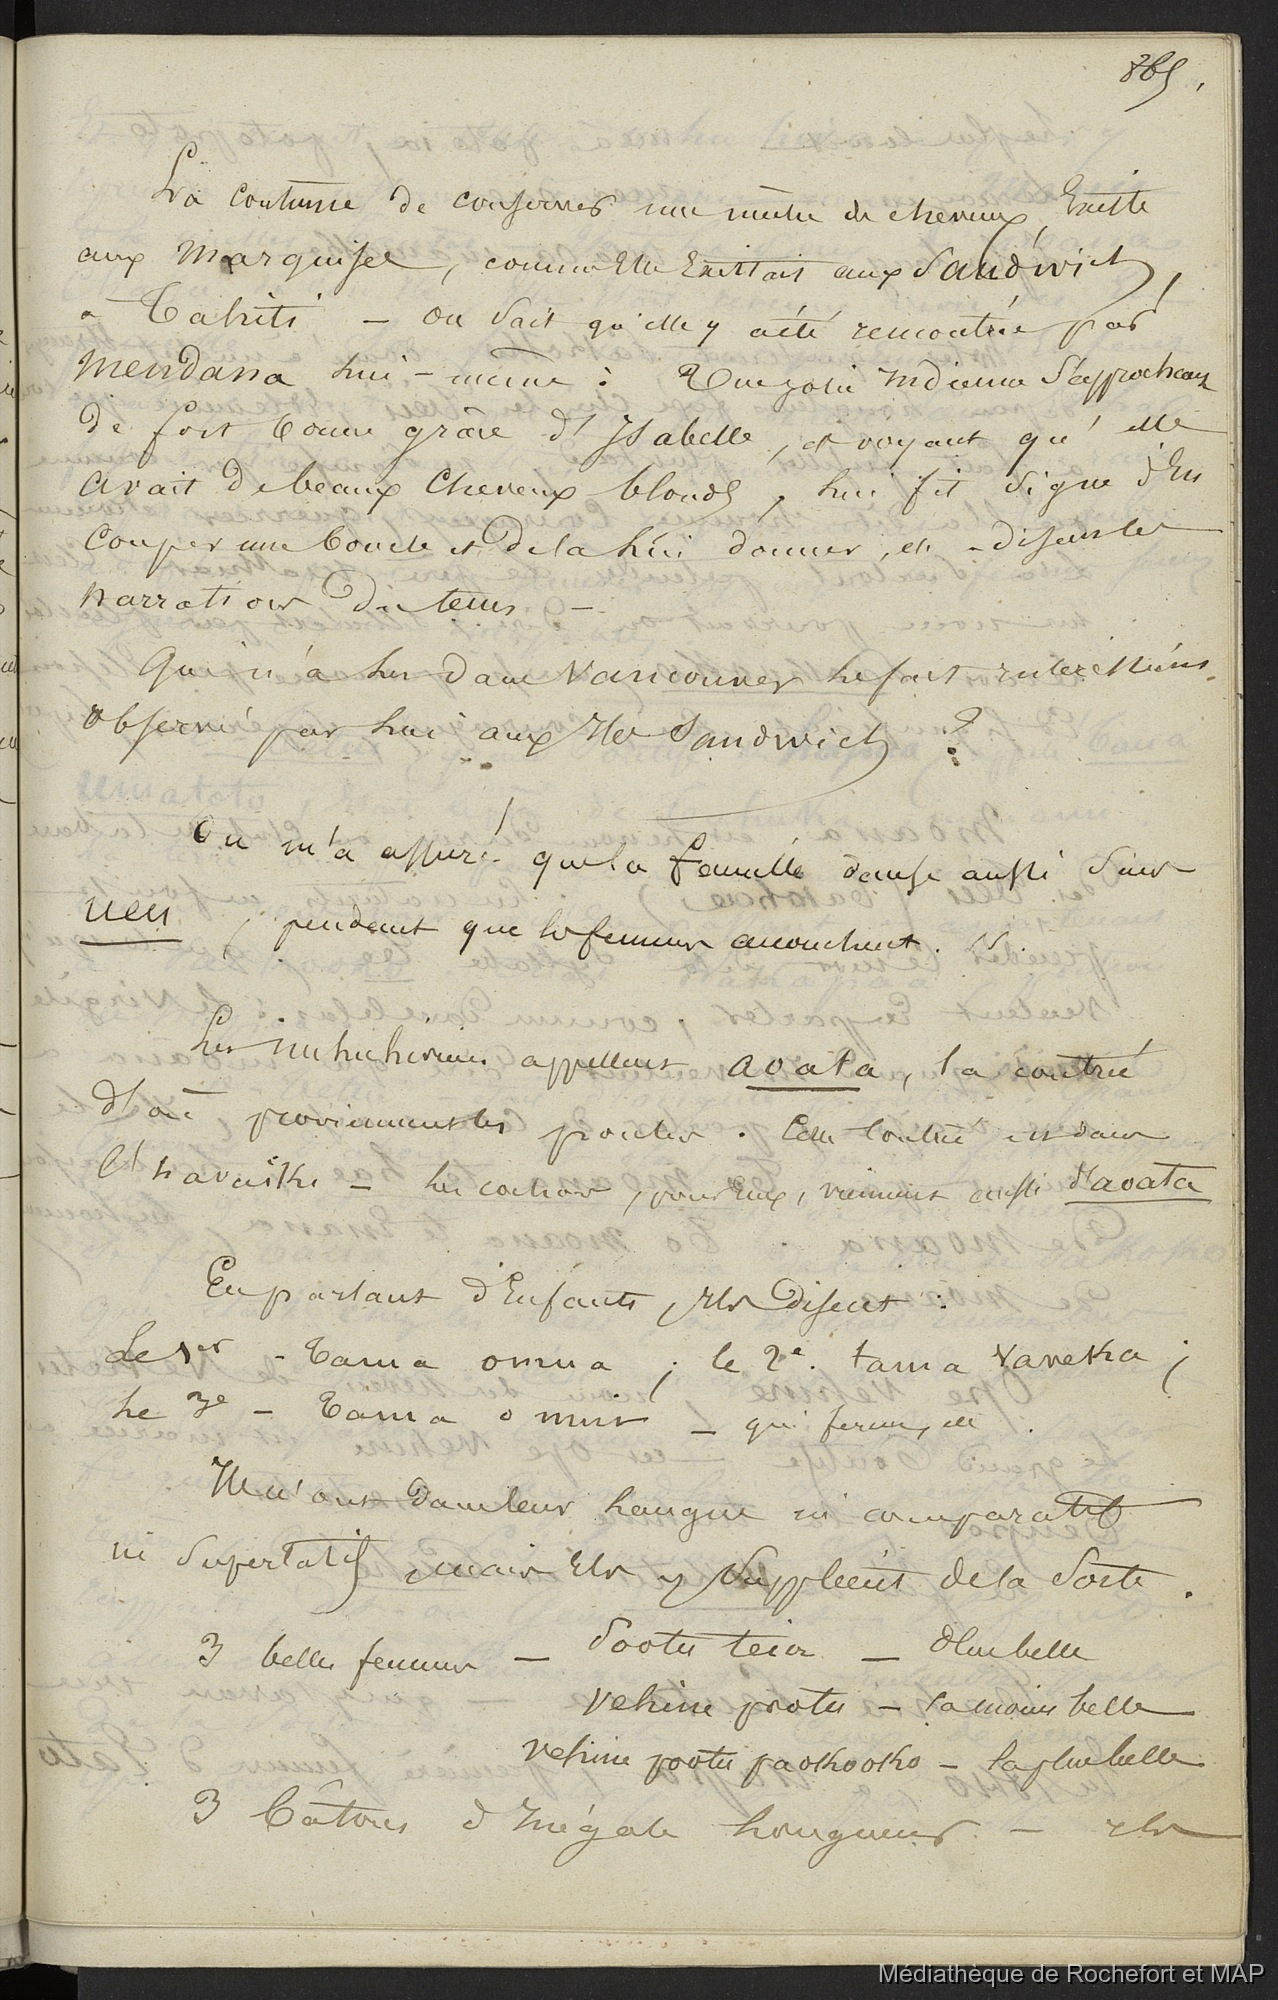 365.
La coutume de conserver une mèche de cheveux, Existe
aux Marquises, comme Elle Existait aux Sandwich,
à Tahiti — on sait qu'elle y a été rencontrée par
Mendana lui-même : Une jolie indienne s'approchant
de fort bonne grâce d'Isabelle, et voyant qu'elle
avait de beaux cheveux blonds, lui fit signe d'En
Couper une boucle et de la lui donner, etc - disent les
narrations du tems —
Qui n'a lu dans Vancouver le fait intéressant
observé par lui aux Iles Sandwich ?
On m'a assuré que la famille danse aussi sans
, pendant que les femmes accouchent.
Les nuhuhiviens appellent aoata, la contrée
d'où proviennent les poules. Cette contrée est dans
l'havaïki — les cochons, pour Eux, viennent aussi d'aoata
En parlant d'Enfants, Ils disent :
Le 1er - Tama omua ; le 2e. tama vaveka ;
le 3e — Tama o mui — qui ferme, etc.
Ils n'ont dans leur langue ni comparatif
ni superlatif, mais Ils y suppléent de la sorte.
3 belles femmes — pootu — Plus belle
vehine pootu — la moins belle
vehine pootu paokooko — la plus belle
3 bâtons d'inégale longueur — ils
Médiathèque de Rochefort et MAP